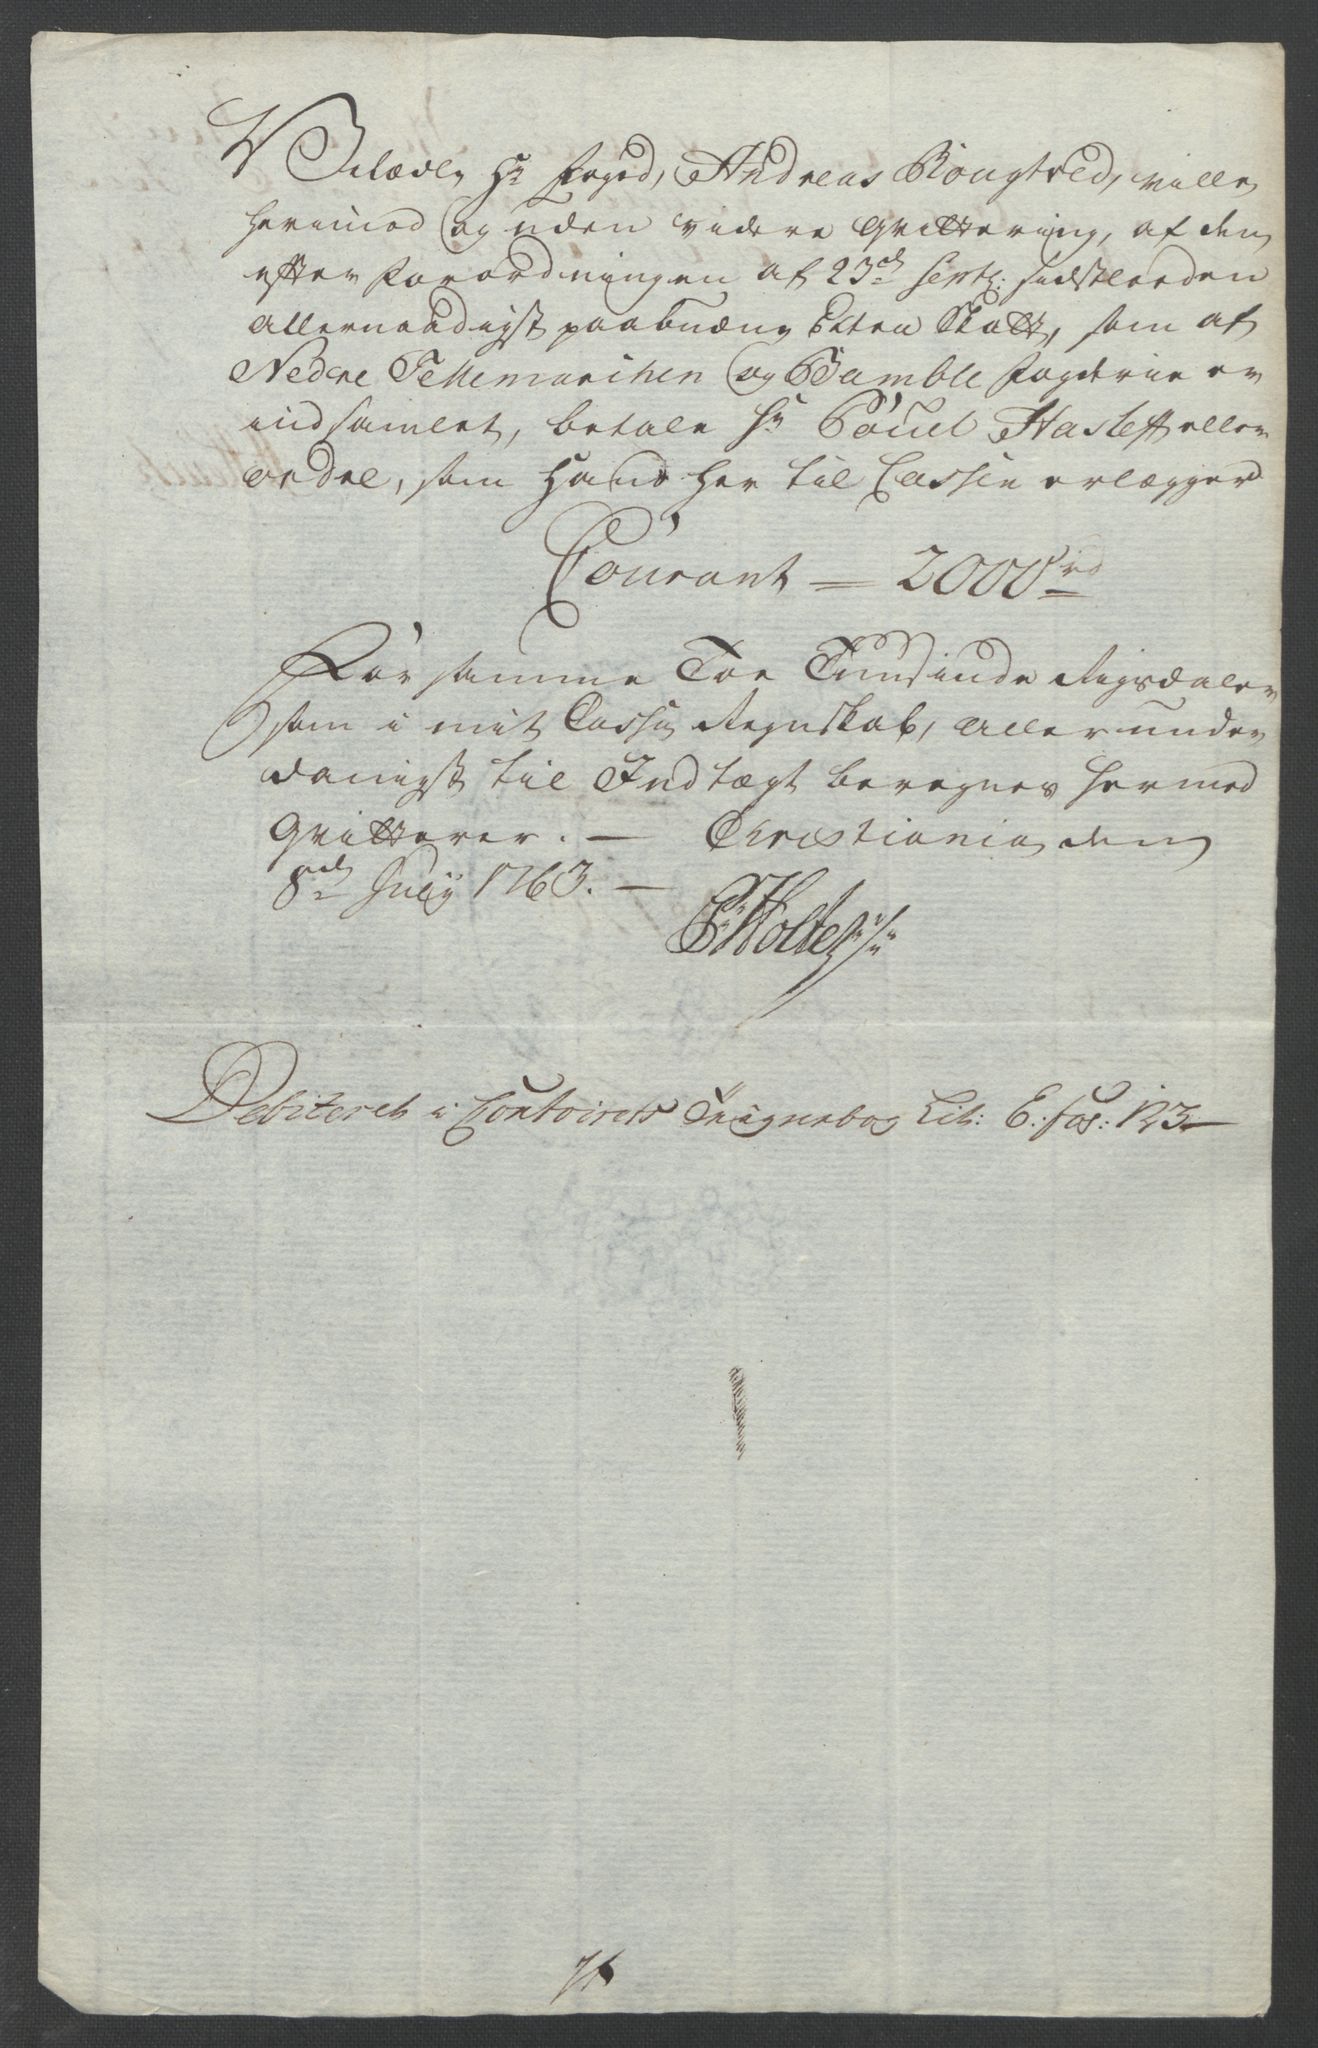 Velædle Hr Foged, Andreas Rougtved, ville
herimod og uden videre qvittering, af den
efter Forordningen af 23de Septb: sidstleeden
allernaadigst paabudne Extra Skatt, som af
Nedre Tellemarchen og Bamble Fogderie er
indsamlet, betale Hr Poüel Hasleff eller
ordre, som Hand her til Cassen erlægger
Courant = 2000 rd
For samme Toe Tusinde Rigsdaler
som i mit Casse Regnskab, allerunder
danigst til Indtægt beregnes hermed
qvitterer. — Christiania den
8de Julij 1763. —
P Holter
Debiteret i Contoirets Tegnebog Lit: E. fol: 123 —